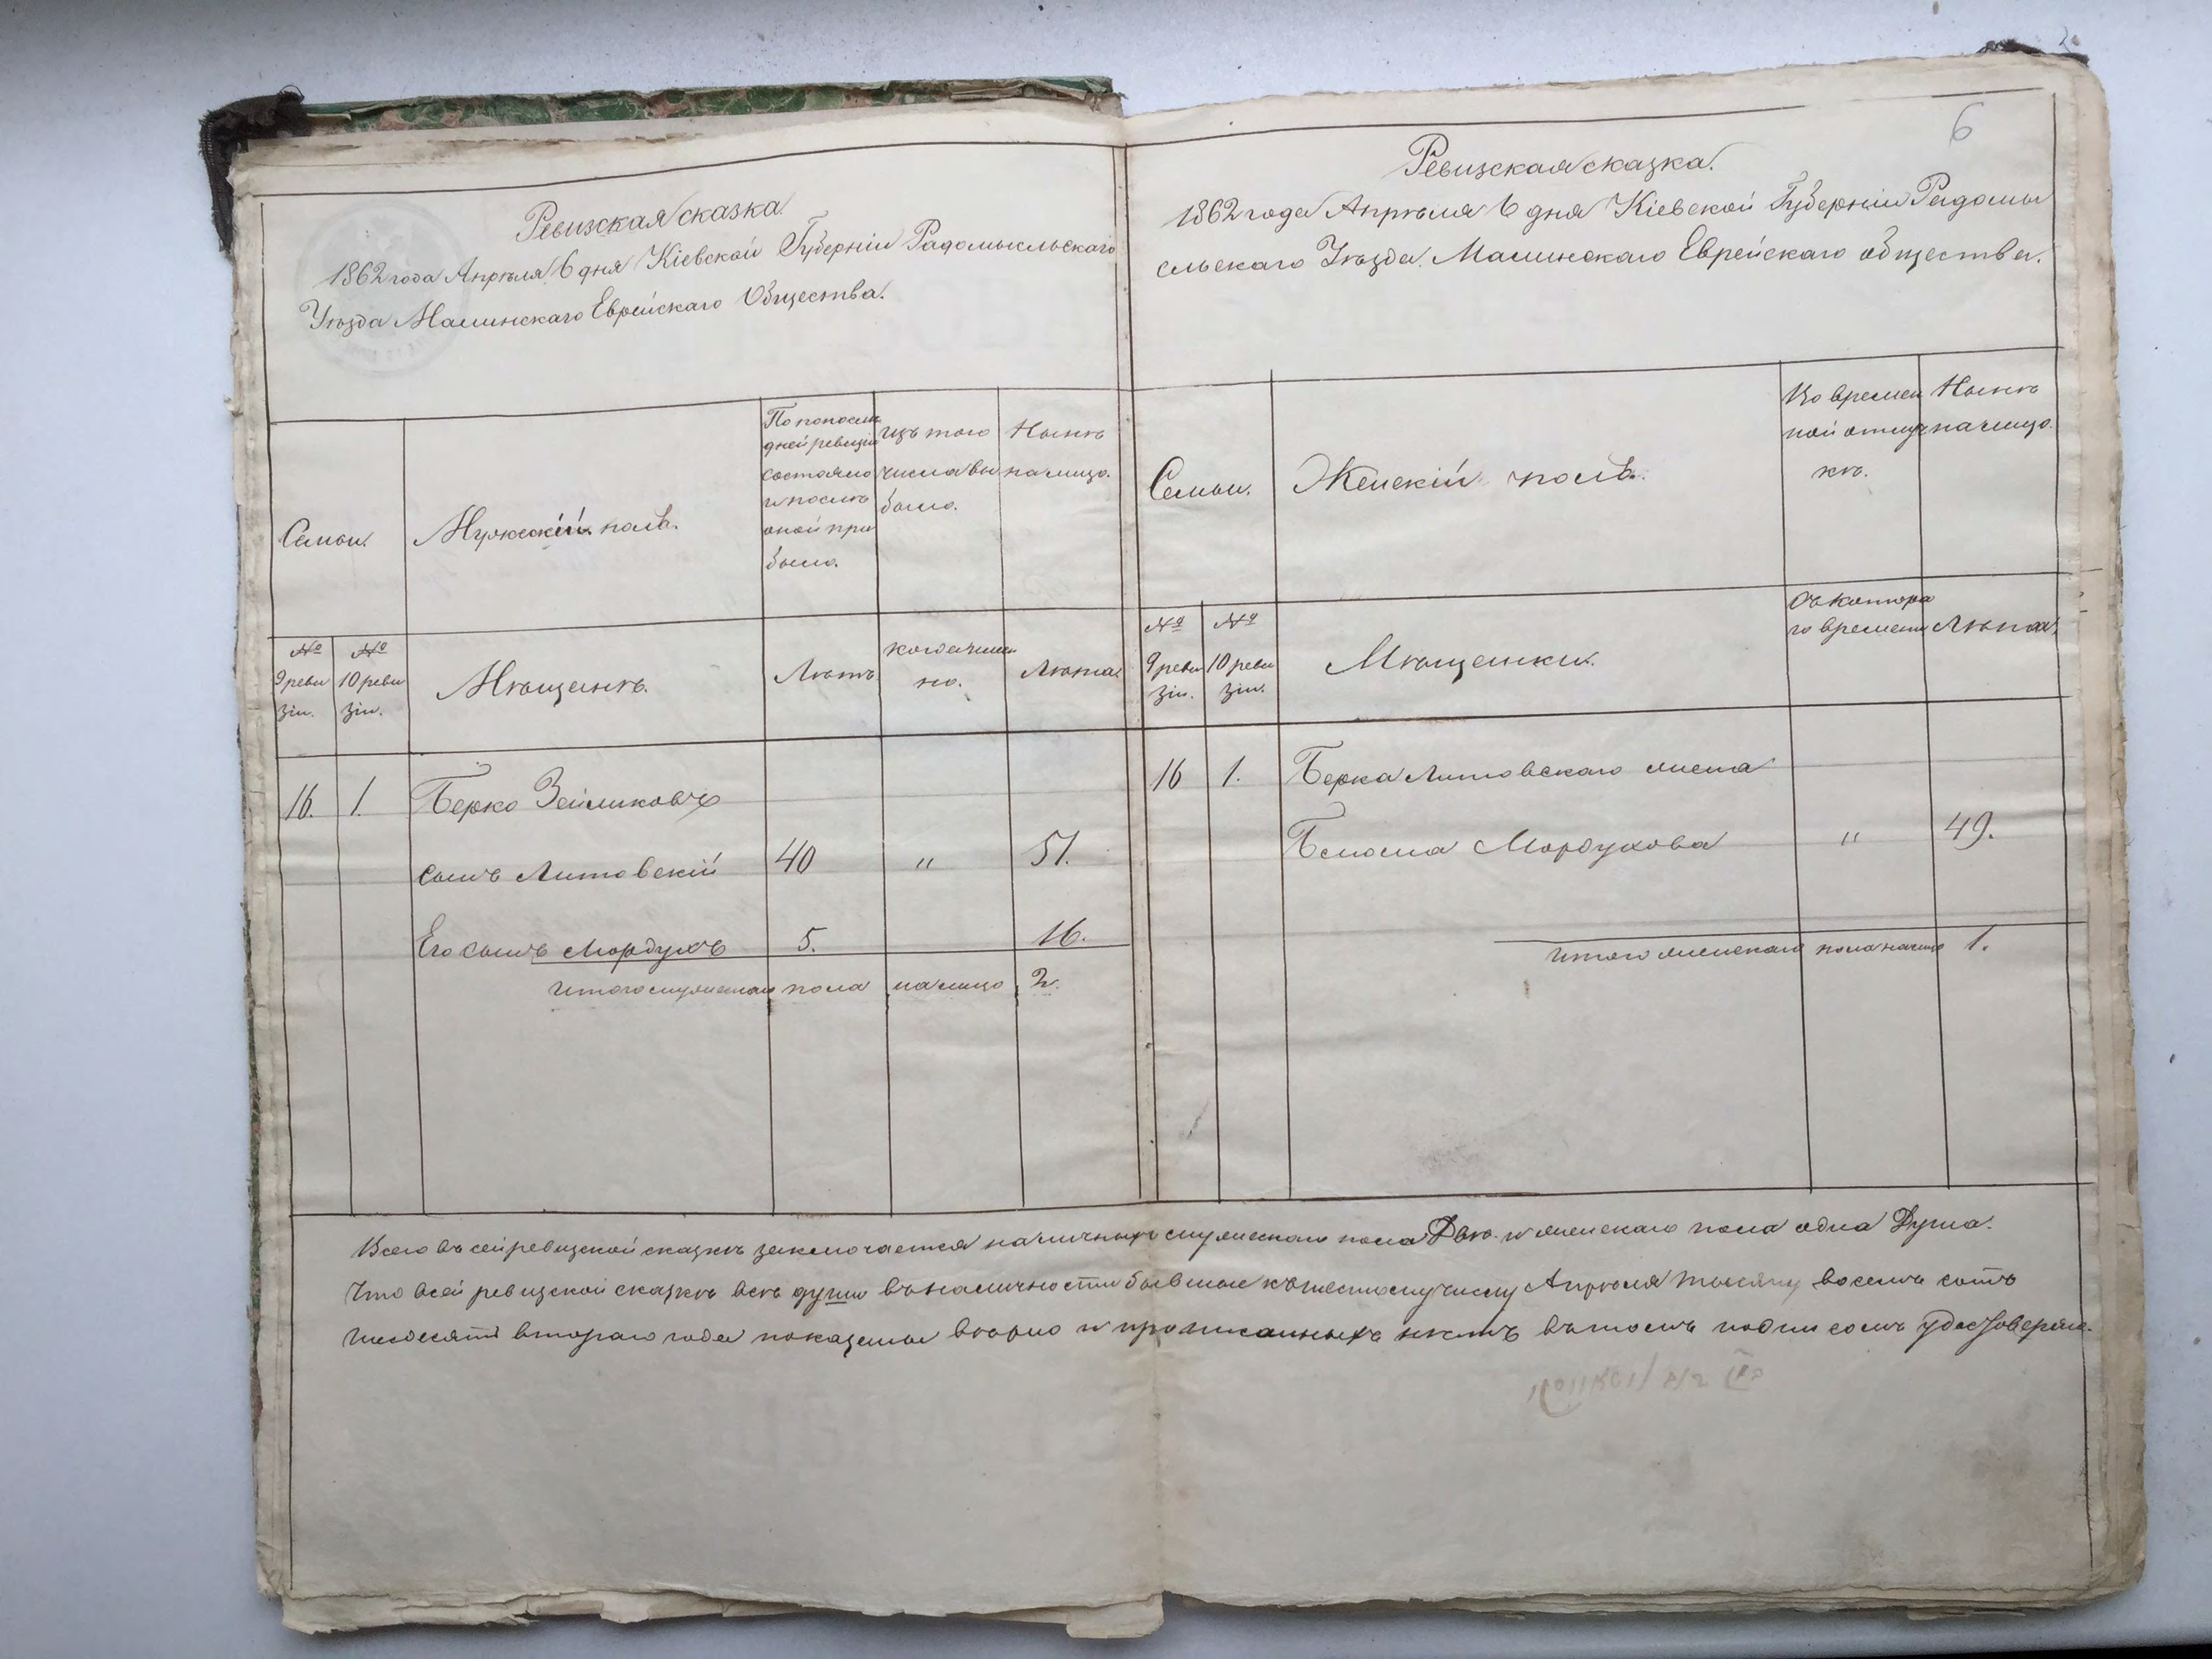 Ревизская сказка
1862 года Апрѣля 6 дня Кіевской Губерніи Радомысльскаго
Уѣзда Малинскаго Еврейскаго Общества.
Семьи.
Мужескій полъ.
По послѣ
дней ревизіи
состояло
и послѣ
оной при
было.
Изъ того
числа вы
было.
Нынѣ
на лицо.
№
9 реви
зіи.
№
10 реви
зіи.
Мѣщанѣ.
Лѣтъ
когда имен
но.
Лѣта.
16. 1. Берко Зейликовъ
сынъ Литовскій 40 " 51.
Его сынъ Мордухъ 5. 16.
Итого мужескаго пола на лицо 2.
6
Ревизская сказка.
1862 года Апрѣля 6 дня Кіевской Губерніи Радомы
сльскаго Уѣзда Малинскаго Еврейскаго общества.
Семьи.
Женскій полъ.
Во времен
ной отлуч
кѣ.
Нынѣ
на лицо.
№
9 реви
зіи.
№
10 реви
зіи.
Мѣщанки.
Съ котора
го времени
Лѣта.
16 1. Берка Литовскаго жена
Мордухова " 49.
Итого женскаго пола на лицо 1.
Всего въ сей ревизской сказкѣ заключается наличныхъ мужескаго пола Двѣ и женскаго пола одна Душа.
Что всей ревизской сказкѣ всѣ души въ наличности бывшые къ шестому числу Апрѣля тысячу восемь сотъ
шесдесятъ втораго года показаны вѣрно и прописанныхъ нѣтъ въ томъ подписомъ удостоверяю.